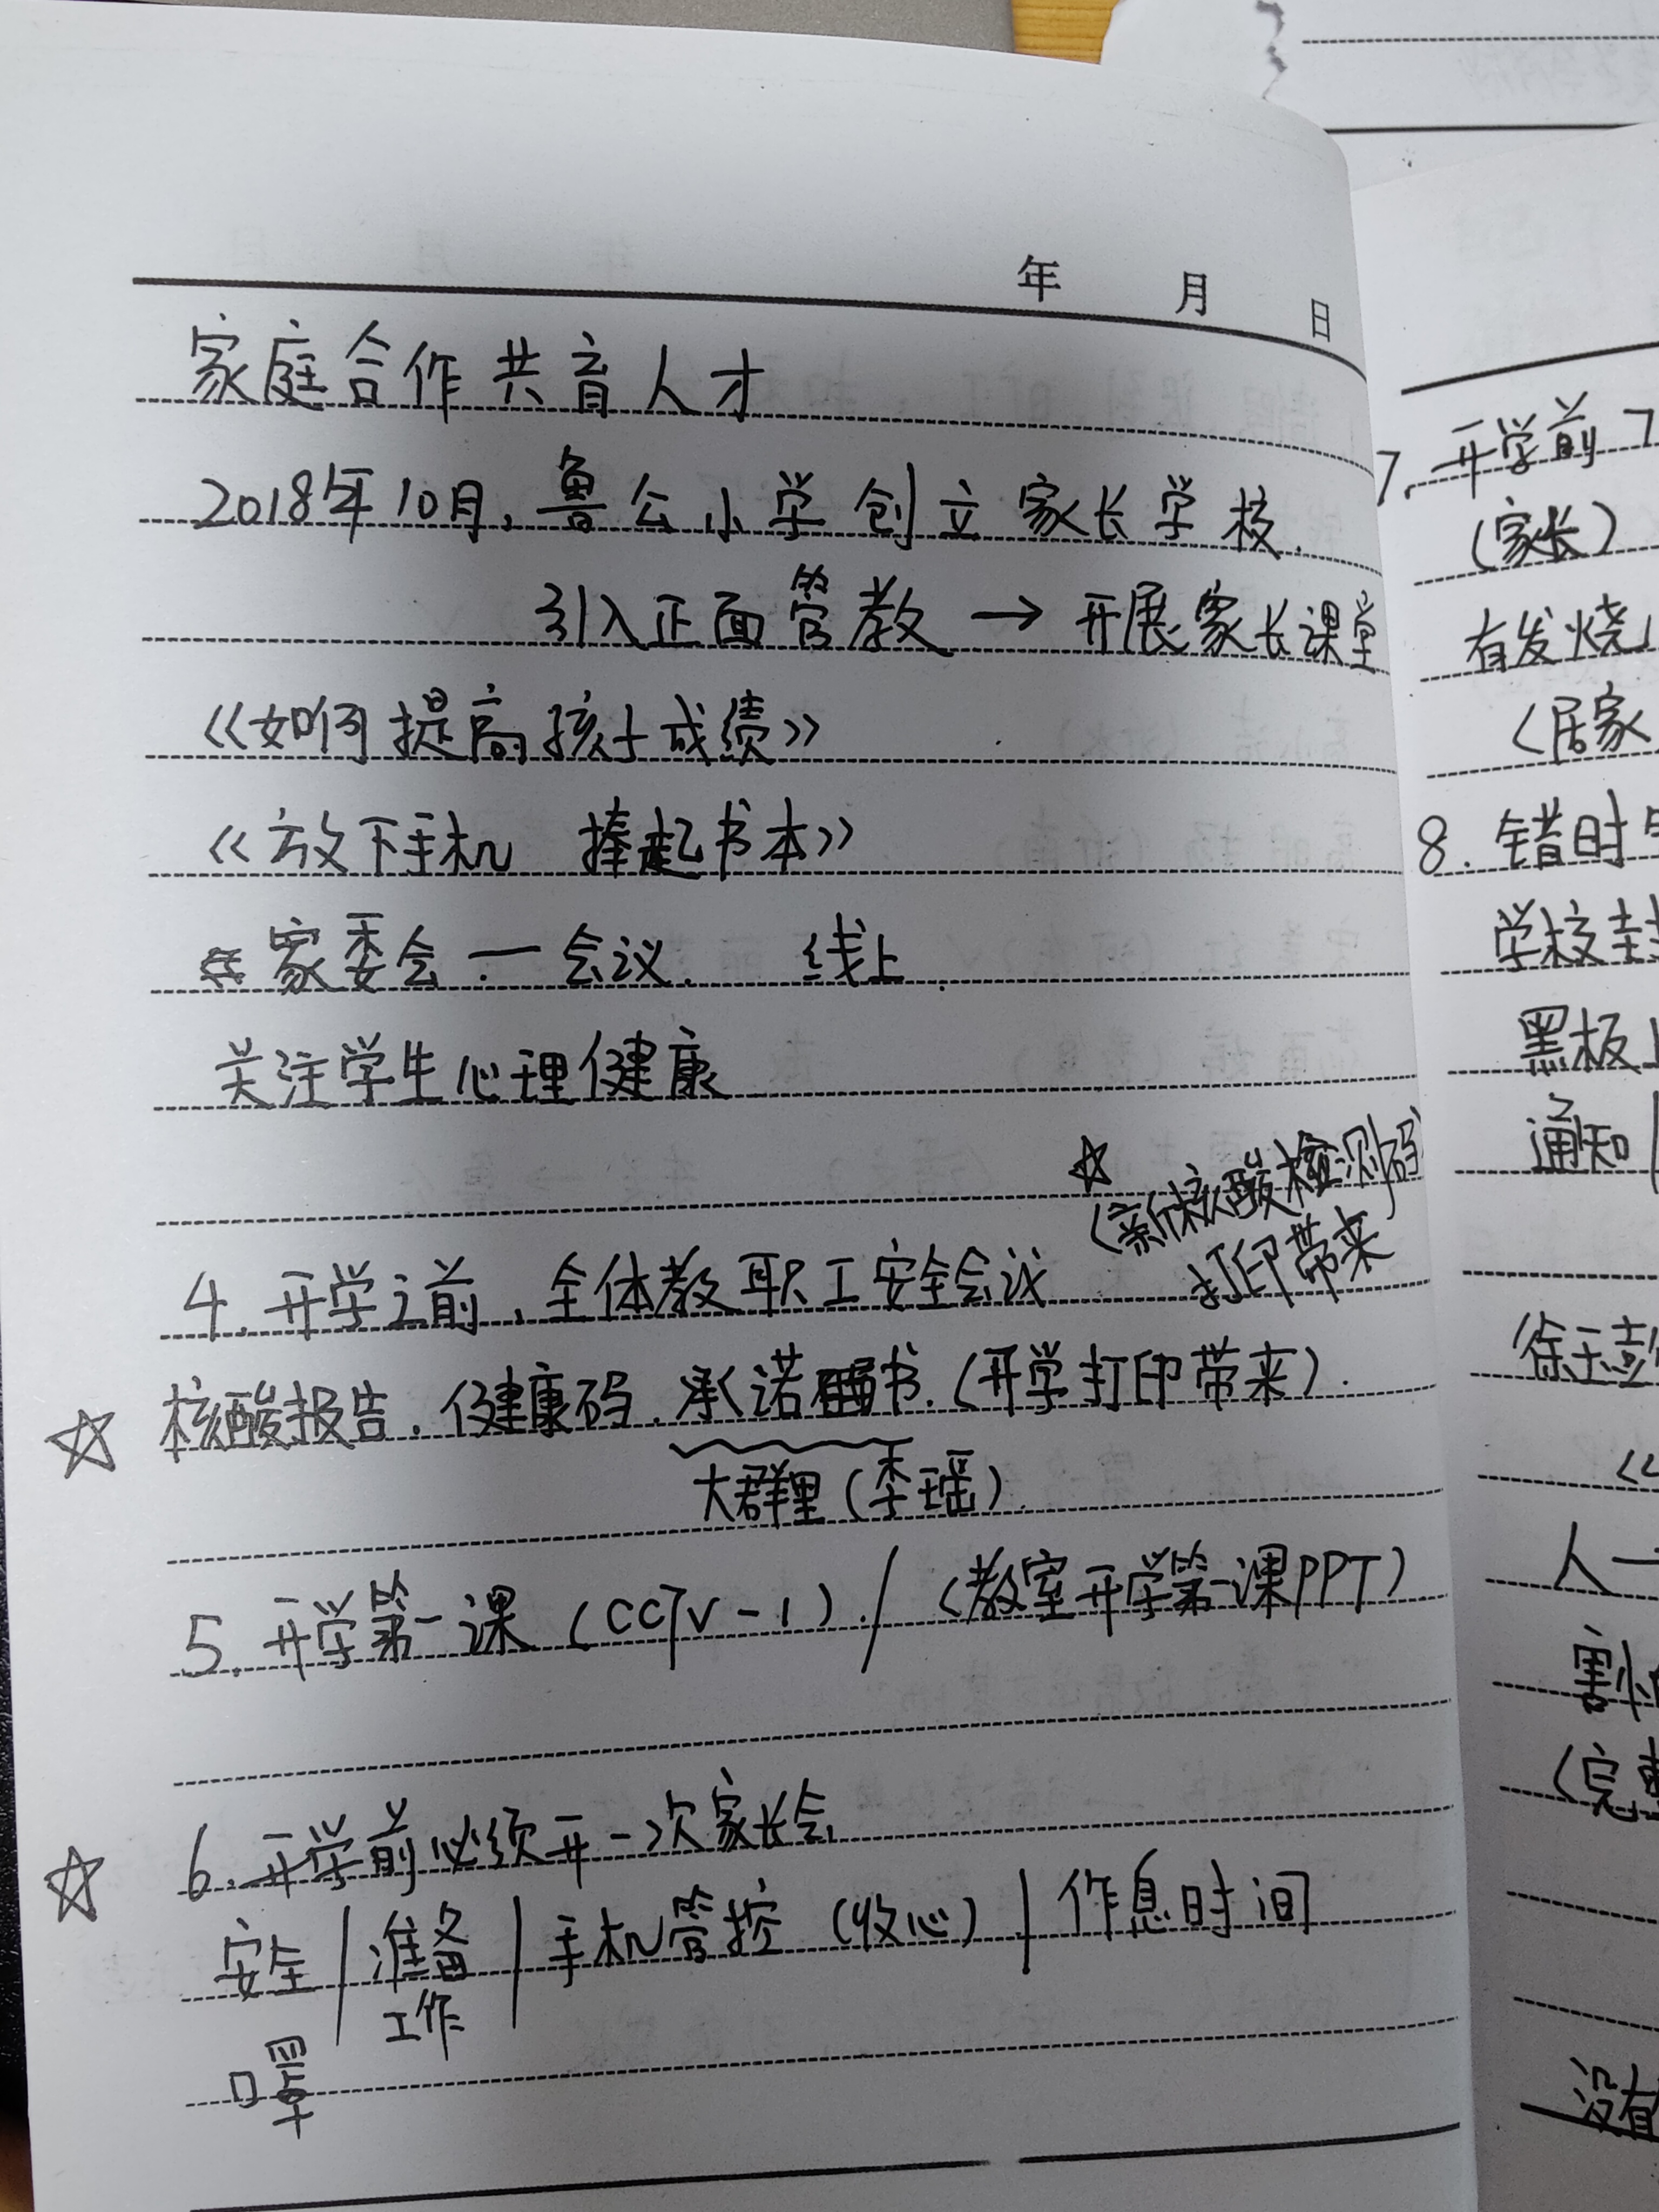 年 月 日
家庭合作共育人才
2018年10月,鲁公小学创立家长学校.
引入正面管教 → 开展家长课堂
《如何提高孩子成绩》
《放下手机 捧起书本》
家委会一会议. 线上.
关注学生心理健康
☆
(新核酸检测码
打印带来
4. 开学之前,全体教职工安全会议
☆ 核酸报告.健康码.承诺书.(开学打印带来).
大群里(李瑶).
5. 开学第一课(CCTV-1)./(教室开学第一课PPT)
☆ 6. 开学前必须开一次家长会
安全/准备/手机管控(收心)/作息时间
工作
口罩
7. 开学前
(家长)
有发烧
(居家
8. 错时
学校
黑板
通知
人一
没有